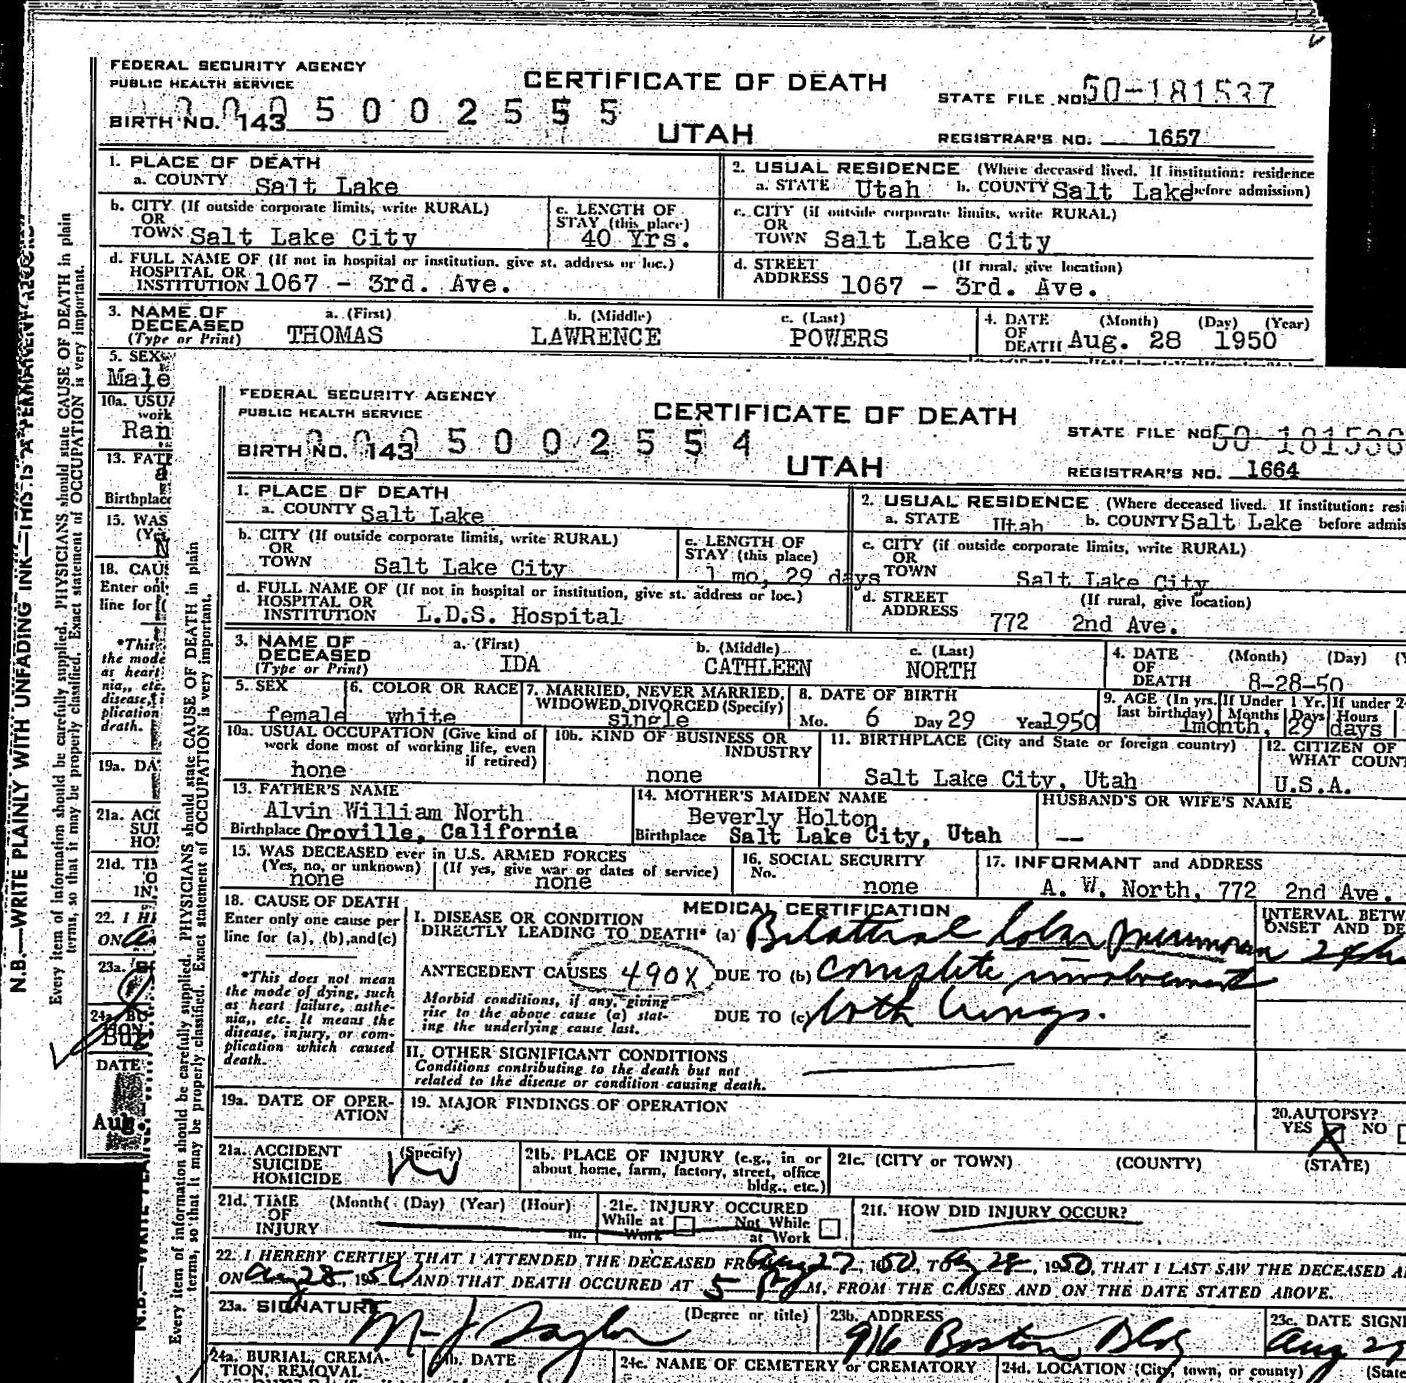 FEDERAL SECURITY AGENCY
PUBLIC HEALTH SERVICE
CERTIFICATE OF DEATH
STATE FILE NO. 50-181537
BIRTH NO. 143 5002555
UTAH
REGISTRAR'S NO. 1657
1. PLACE OF DEATH
a. COUNTY Salt Lake
2. USUAL RESIDENCE (Where deceased lived. If institution: residence
a. STATE Utah b. COUNTY Salt Lake before admission)
b. CITY (If outside corporate limits, write RURAL)
OR
TOWN Salt Lake City
c. LENGTH OF
STAY (this place)
40 Yrs.
c. CITY (if outside corporate limits, write RURAL)
OR
TOWN Salt Lake City
d. FULL NAME OF (If not in hospital or institution, give st. address or loc.)
HOSPITAL OR
INSTITUTION 1067 - 3rd. Ave.
d. STREET (If rural, give location)
ADDRESS 1067 - 3rd. Ave.
3. NAME OF
DECEASED
(Type or Print)
a. (First)
THOMAS
b. (Middle)
LAWRENCE
c. (Last)
POWERS
4. DATE (Month) (Day) (Year)
OF
DEATH Aug. 28 1950
5. SEX
Male
10a. USU
work
Ran
13. FAT
Birthplace
15. WAS
(Yes,
N
18. CAU
Enter onl
line for (
*This
the mode
as heart
nia,, etc.
disease, i
plication
death.
19a. DA
21a. ACC
SUI
HO
21d. TI
O
IN
22. I H
ON
23a. S
24a. BU
Bur
DATE
Aug.
N.B.—WRITE PLAINLY WITH UNFADING INK—THIS IS A PERMANENT RECORD
Every item of information should be carefully supplied. PHYSICIANS should state CAUSE OF DEATH in plain
terms, so that it may be properly classified. Exact statement of OCCUPATION is very important.
FEDERAL SECURITY AGENCY
PUBLIC HEALTH SERVICE
CERTIFICATE OF DEATH
STATE FILE NO. 50-181536
BIRTH NO. 143 5002554
UTAH
REGISTRAR'S NO. 1664
1. PLACE OF DEATH
a. COUNTY Salt Lake
2. USUAL RESIDENCE (Where deceased lived. If institution: resi
a. STATE Utah b. COUNTY Salt Lake before admis
b. CITY (If outside corporate limits, write RURAL)
OR
TOWN Salt Lake City
c. LENGTH OF
STAY (this place)
1 mo, 29 days
c. CITY (if outside corporate limits, write RURAL)
OR
TOWN Salt Lake City
d. FULL NAME OF (If not in hospital or institution, give st. address or loc.)
HOSPITAL OR
INSTITUTION L.D.S. Hospital
d. STREET (If rural, give location)
ADDRESS 772 2nd Ave.
3. NAME OF
DECEASED
(Type or Print)
a. (First)
IDA
b. (Middle)
CATHLEEN
c. (Last)
NORTH
4. DATE (Month) (Day) (Y
OF
DEATH 8-28-50
5. SEX
female
6. COLOR OR RACE
white
7. MARRIED, NEVER MARRIED,
WIDOWED, DIVORCED (Specify)
single
8. DATE OF BIRTH
Mo. 6 Day 29 Year 1950
9. AGE (In yrs. If Under 1 Yr. If under 2
last birthday) Months Days Hours
1month, 29 days
10a. USUAL OCCUPATION (Give kind of
work done most of working life, even
if retired)
none
10b. KIND OF BUSINESS OR
INDUSTRY
none
11. BIRTHPLACE (City and State or foreign country)
Salt Lake City, Utah
12. CITIZEN OF
WHAT COUN
U.S.A.
13. FATHER'S NAME
Alvin William North
Birthplace Oroville, California
14. MOTHER'S MAIDEN NAME
Beverly Holton
Birthplace Salt Lake City, Utah
HUSBAND'S OR WIFE'S NAME
--
15. WAS DECEASED ever in U.S. ARMED FORCES
(Yes, no, or unknown) (If yes, give war or dates of service)
none none
16. SOCIAL SECURITY
No.
none
17. INFORMANT and ADDRESS
A. W. North, 772 2nd Ave.
18. CAUSE OF DEATH
Enter only one cause per
line for (a), (b), and (c)
*This does not mean
the mode of dying, such
as heart failure, asthe-
nia,, etc. It means the
disease, injury, or com-
plication which caused
death.
MEDICAL CERTIFICATION
I. DISEASE OR CONDITION
DIRECTLY LEADING TO DEATH* (a) Bilateral lobar pneumonia
INTERVAL BETW
ONSET AND DE
24 h
ANTECEDENT CAUSES 490X DUE TO (b) complete involvement
Morbid conditions, if any, giving
rise to the above cause (a) stat-
ing the underlying cause last.
DUE TO (c) both lungs.
II. OTHER SIGNIFICANT CONDITIONS
Conditions contributing to the death but not
related to the disease or condition causing death.
19a. DATE OF OPER-
ATION
19. MAJOR FINDINGS OF OPERATION
20. AUTOPSY?
YES X NO
21a. ACCIDENT
SUICIDE
HOMICIDE
(Specify)
21b. PLACE OF INJURY (e.g., in or
about home, farm, factory, street, office
bldg., etc.)
21c. (CITY or TOWN) (COUNTY) (STATE)
21d. TIME (Month( (Day) (Year) (Hour)
OF
INJURY m.
21e. INJURY OCCURED
While at Not While
Work at Work
21f. HOW DID INJURY OCCUR?
22. I HEREBY CERTIFY THAT I ATTENDED THE DECEASED FROM Aug 27, 1950, TO Aug 28, 1950, THAT I LAST SAW THE DECEASED A
ON Aug 28, 1950 AND THAT DEATH OCCURED AT 5 P M, FROM THE CAUSES AND ON THE DATE STATED ABOVE.
23a. SIGNATURE (Degree or title)
M. J. Taylor
23b. ADDRESS
916 Boston Bldg
23c. DATE SIGN
Aug 29
24a. BURIAL, CREMA-
TION, REMOVAL
24b. DATE
24c. NAME OF CEMETERY or CREMATORY
24d. LOCATION (City, town, or county) (State
Every item of information should be carefully supplied. PHYSICIANS should state CAUSE OF DEATH in plain
terms, so that it may be properly classified. Exact statement of OCCUPATION is very important.